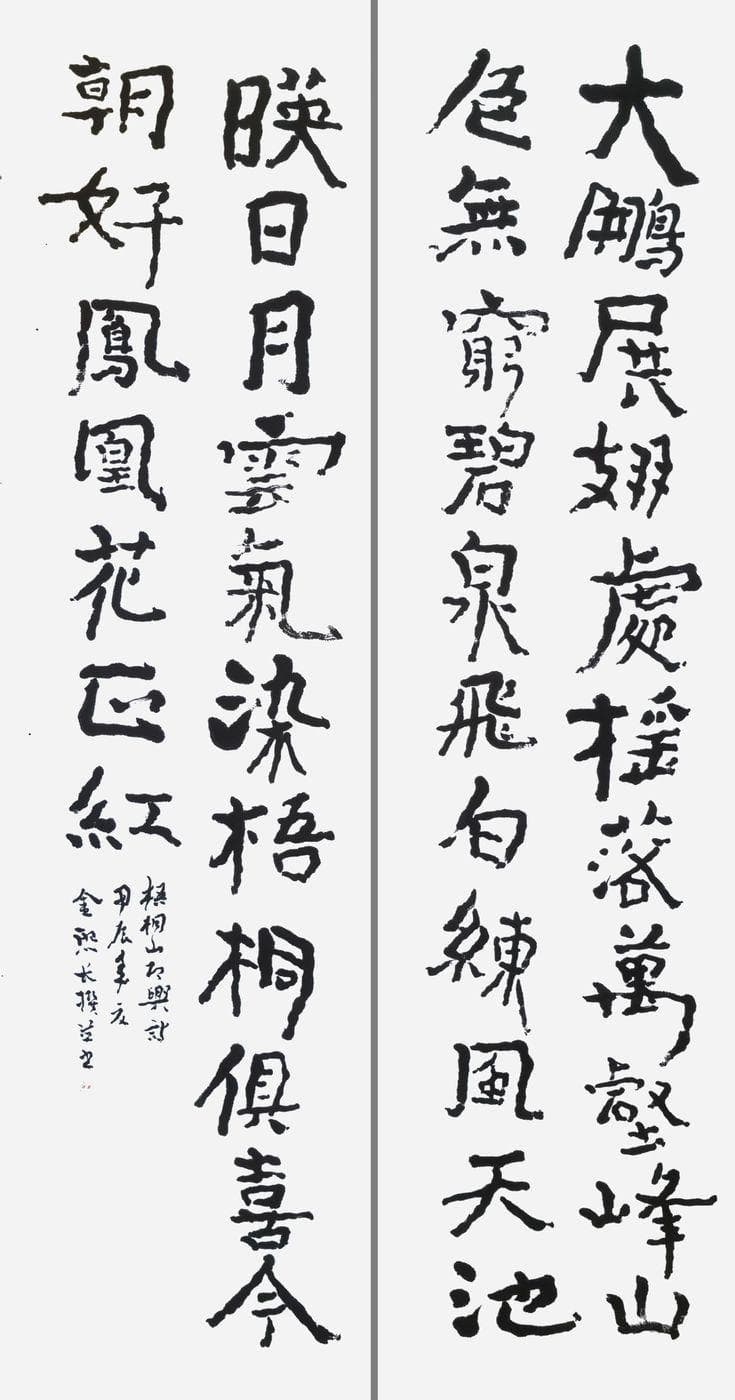 大鵬展翅處搖落萬壑峰山
色無窮碧泉飛白練風天池
暎日月雲氣染梧桐俱喜今
朝好鳳凰花正紅
梧桐山即興詩
甲辰年夏
金熙长撰并书